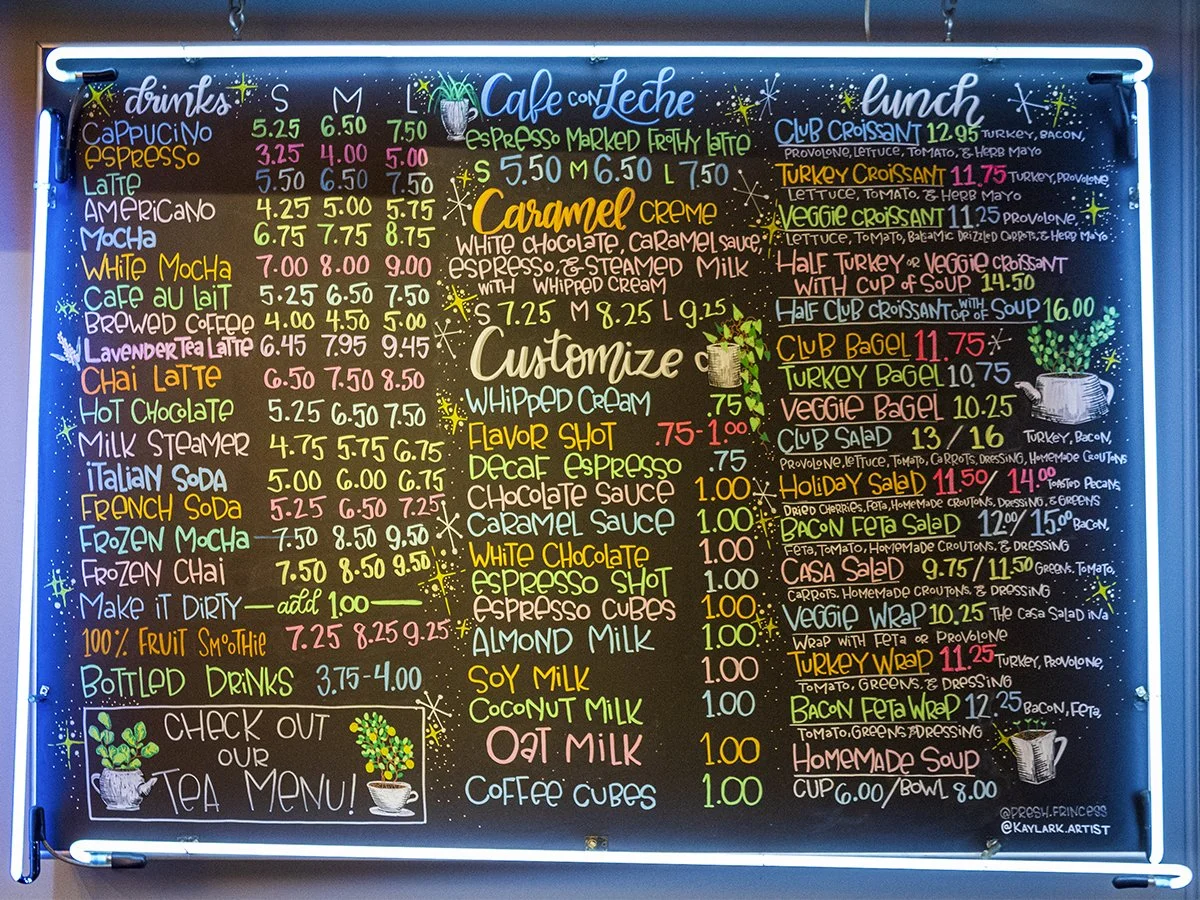 drinks S M L
Cappucino 5.25 6.50 7.50
Espresso 3.25 4.00 5.00
Latte 5.50 6.50 7.50
Americano 4.25 5.00 5.75
Mocha 6.75 7.75 8.75
White Mocha 7.00 8.00 9.00
Cafe au lait 5.25 6.50 7.50
Brewed Coffee 4.00 4.50 5.00
Lavender Tea Latte 6.45 7.95 9.45
Chai Latte 6.50 7.50 8.50
Hot Chocolate 5.25 6.50 7.50
Milk Steamer 4.75 5.75 6.75
Italian Soda 5.00 6.00 6.75
French Soda 5.25 6.50 7.25
Frozen Mocha 7.50 8.50 9.50
Frozen Chai 7.50 8.50 9.50
Make it Dirty — add 1.00 —
100% Fruit Smoothie 7.25 8.25 9.25
Bottled Drinks 3.75-4.00
Check out
our
Tea Menu!
Cafe con Leche
Espresso Marked Frothy Latte
S 5.50 M 6.50 L 7.50
Caramel Creme
White Chocolate, Caramel Sauce,
Espresso, & Steamed Milk
with Whipped Cream
S 7.25 M 8.25 L 9.25
Customize
Whipped Cream .75
Flavor Shot .75-1.00
Decaf Espresso .75
Chocolate Sauce 1.00
Caramel Sauce 1.00
White Chocolate 1.00
Espresso Shot 1.00
Espresso Cubes 1.00
Almond Milk 1.00
Soy Milk 1.00
Coconut Milk 1.00
Oat Milk 1.00
Coffee Cubes 1.00
lunch
Club Croissant 12.95 Turkey, Bacon,
Provolone, Lettuce, Tomato, & Herb Mayo
Turkey Croissant 11.75 Turkey, Provolone,
Lettuce, Tomato, & Herb Mayo
Veggie Croissant 11.25 Provolone,
Lettuce, Tomato, Balsamic Drizzled Carrots, & Herb Mayo
Half Turkey or Veggie Croissant
with cup of Soup 14.50
Half Club Croissant with cup of Soup 16.00
Club Bagel 11.75
Turkey Bagel 10.75
Veggie Bagel 10.25
Club Salad 13/16 Turkey, Bacon,
Provolone, Lettuce, Tomato, Carrots, Dressing, Homemade Croutons
Holiday Salad 11.50/14.00 Toasted Pecans,
Dried Cherries, Feta, Homemade Croutons, Dressing, & Greens
Bacon Feta Salad 12.00/15.00 Bacon,
Feta, Tomato, Homemade Croutons, & Dressing
Casa Salad 9.75/11.50 Greens, Tomato,
Carrots, Homemade Croutons, & Dressing
Veggie Wrap 10.25 The Casa Salad in a
Wrap with Feta or Provolone
Turkey Wrap 11.25 Turkey, Provolone,
Tomato, Greens, & Dressing
Bacon Feta Wrap 12.25 Bacon, Feta,
Tomato, Greens & Dressing
Homemade Soup
Cup 6.00/Bowl 8.00
@fresh.frincess
@kaylark.artist